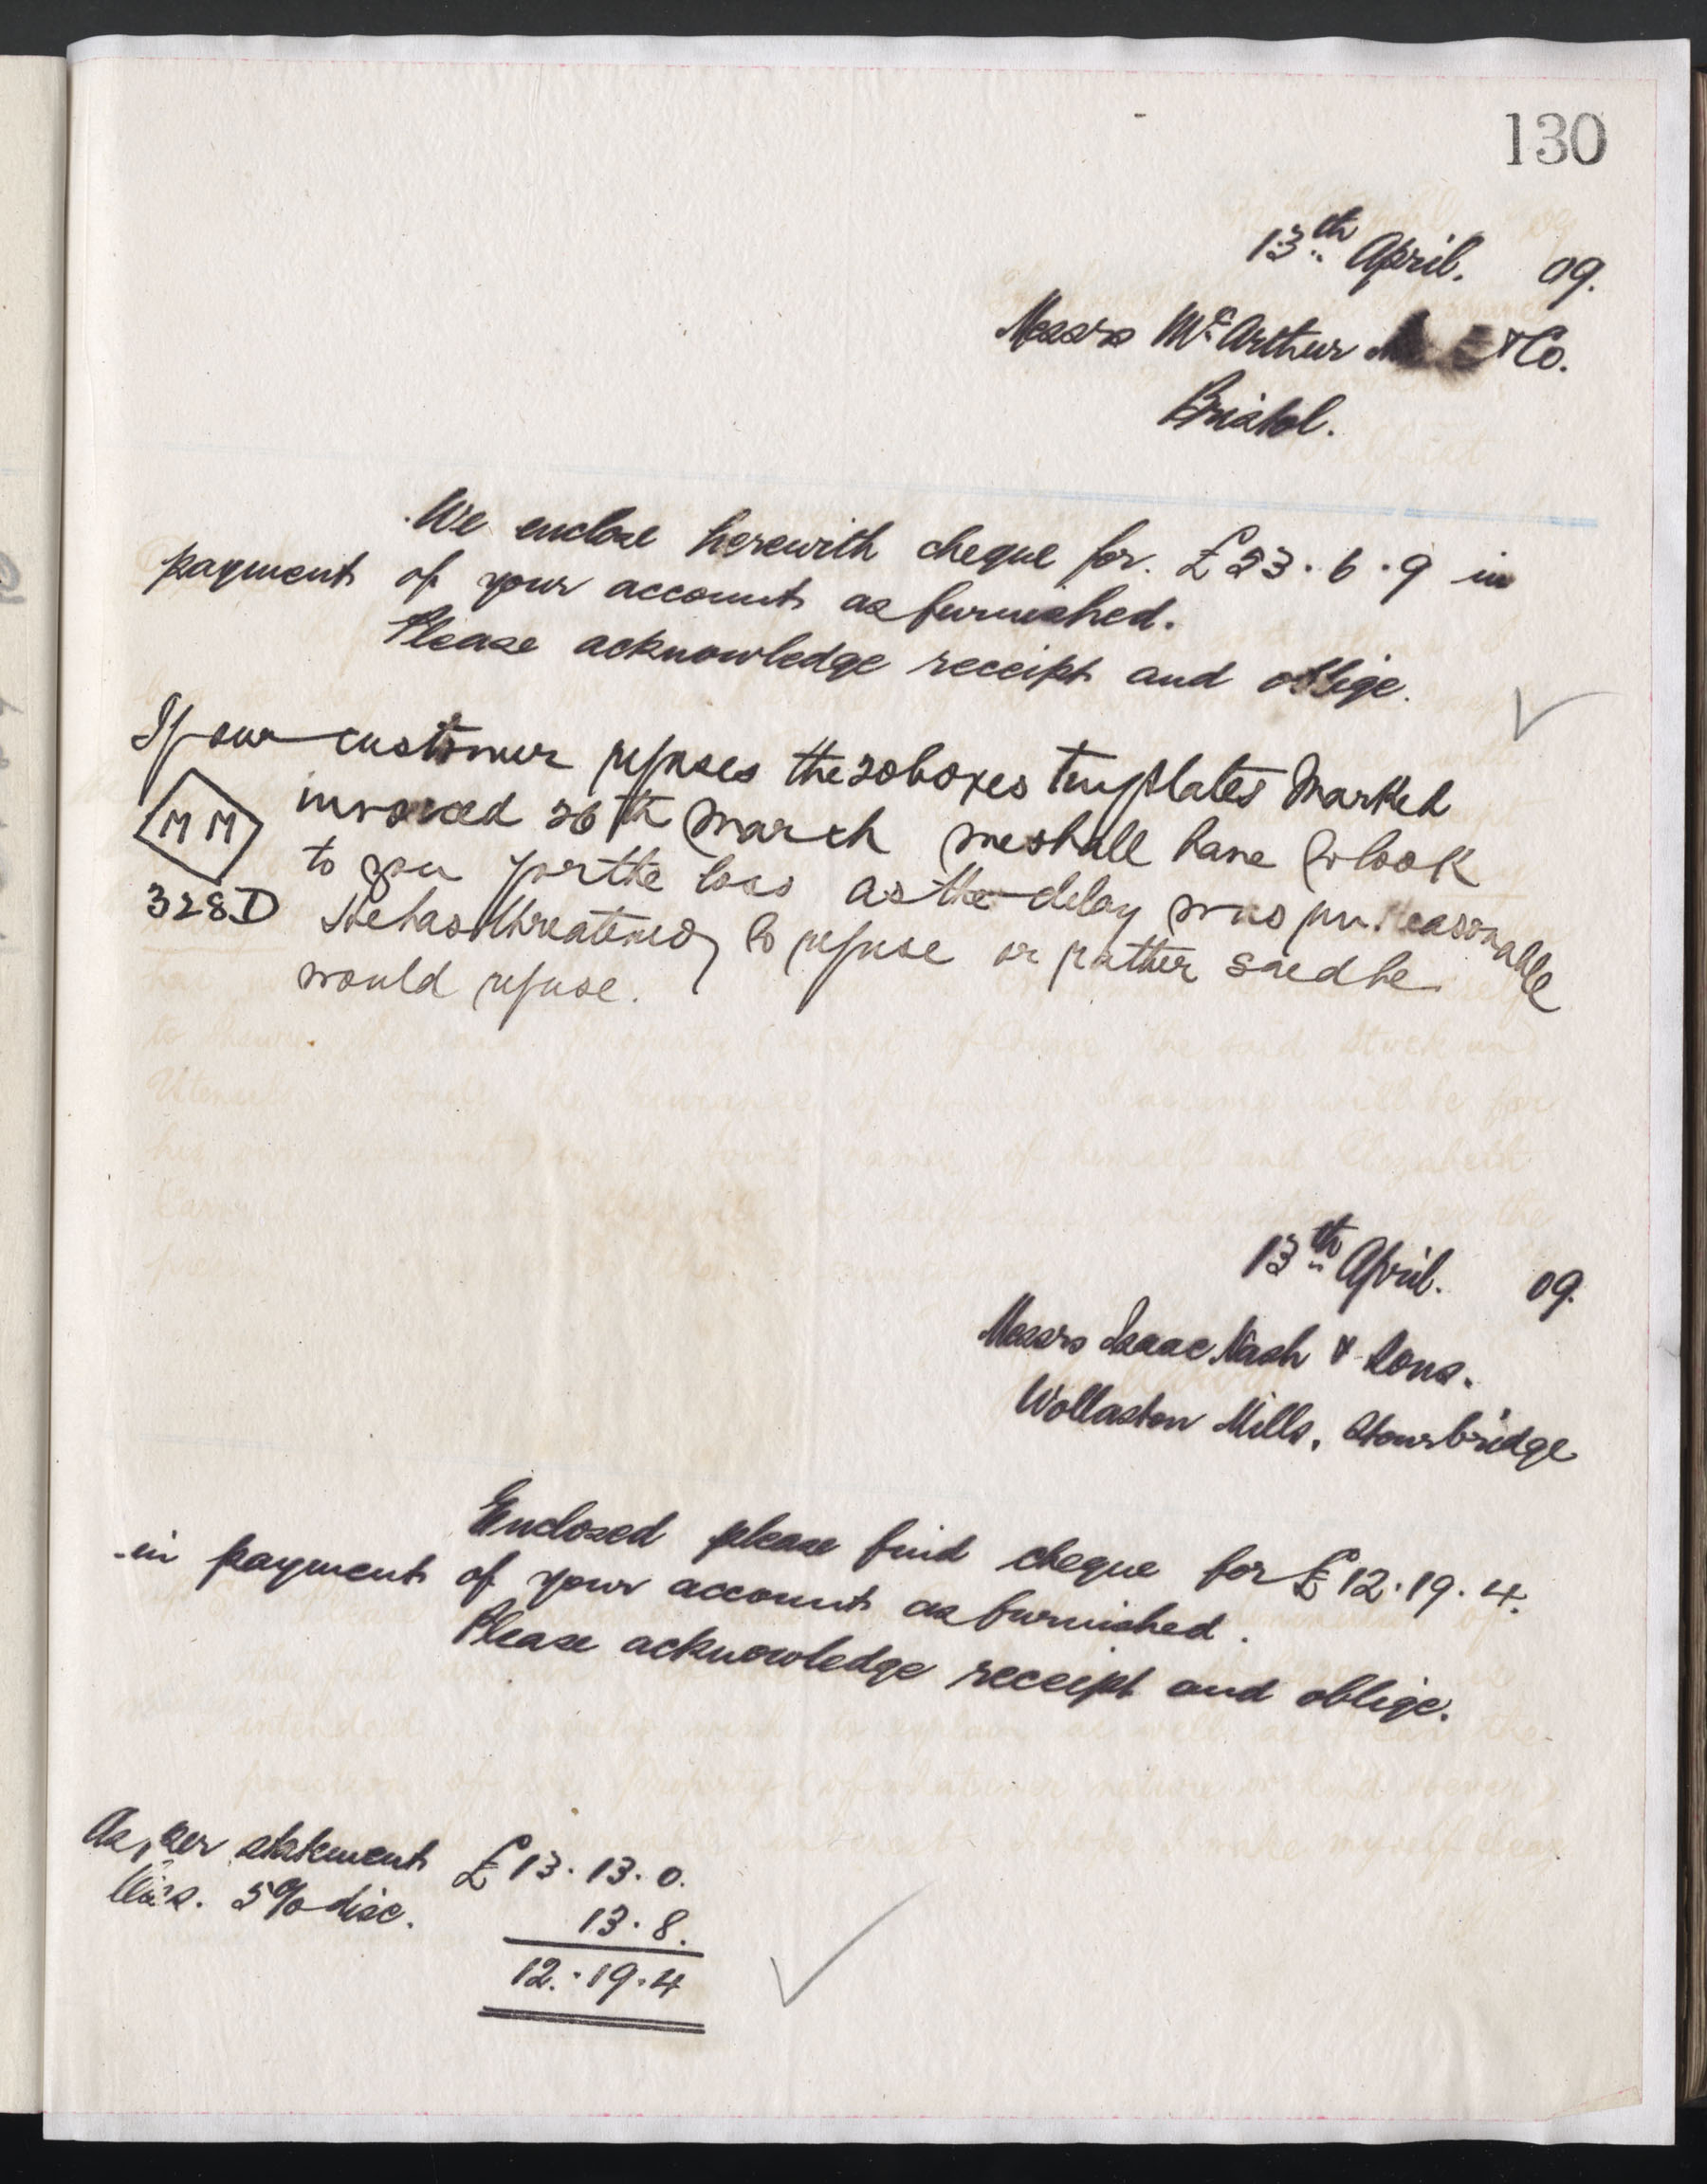 130
13th April. 09.
Messrs McArthur & Co.
Bristol.
We enclose herewith cheque for £23.6.9 in
payment of your account as furnished.
Please acknowledge receipt and oblige.
If our customer refuses the 20 boxes Tinplates Marked
MM invoiced 26th March we shall have to look
to you for the loss as the delay was unreasonable
328D He has threatened to refuse or rather said he
would refuse.
13th April. 09.
Messrs Isaac Nash & Sons.
Wollaston Mills, Stourbridge
Enclosed please find cheque for £12.19.4.
in payment of your account as furnished.
Please acknowledge receipt and oblige.
As per statement £13.13.0.
Less. 5% disc. 13.8.
12.19.4